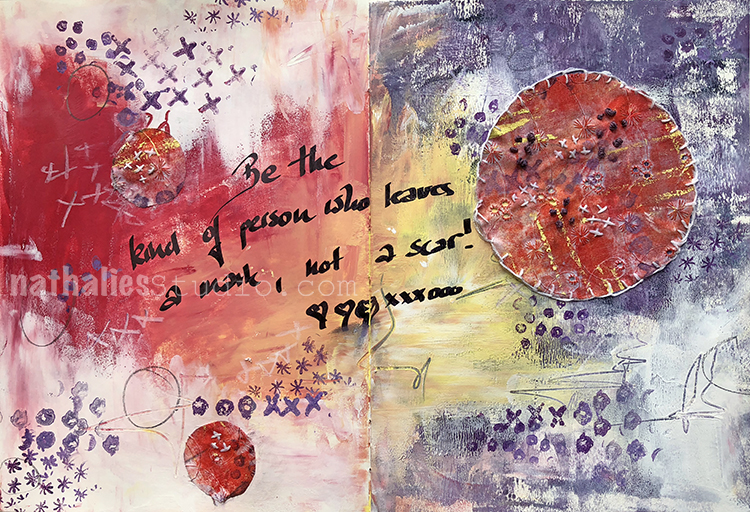 Be the
kind of person who leaves
a mark, not a scar!
xxxooo
nathaliesstudio.com